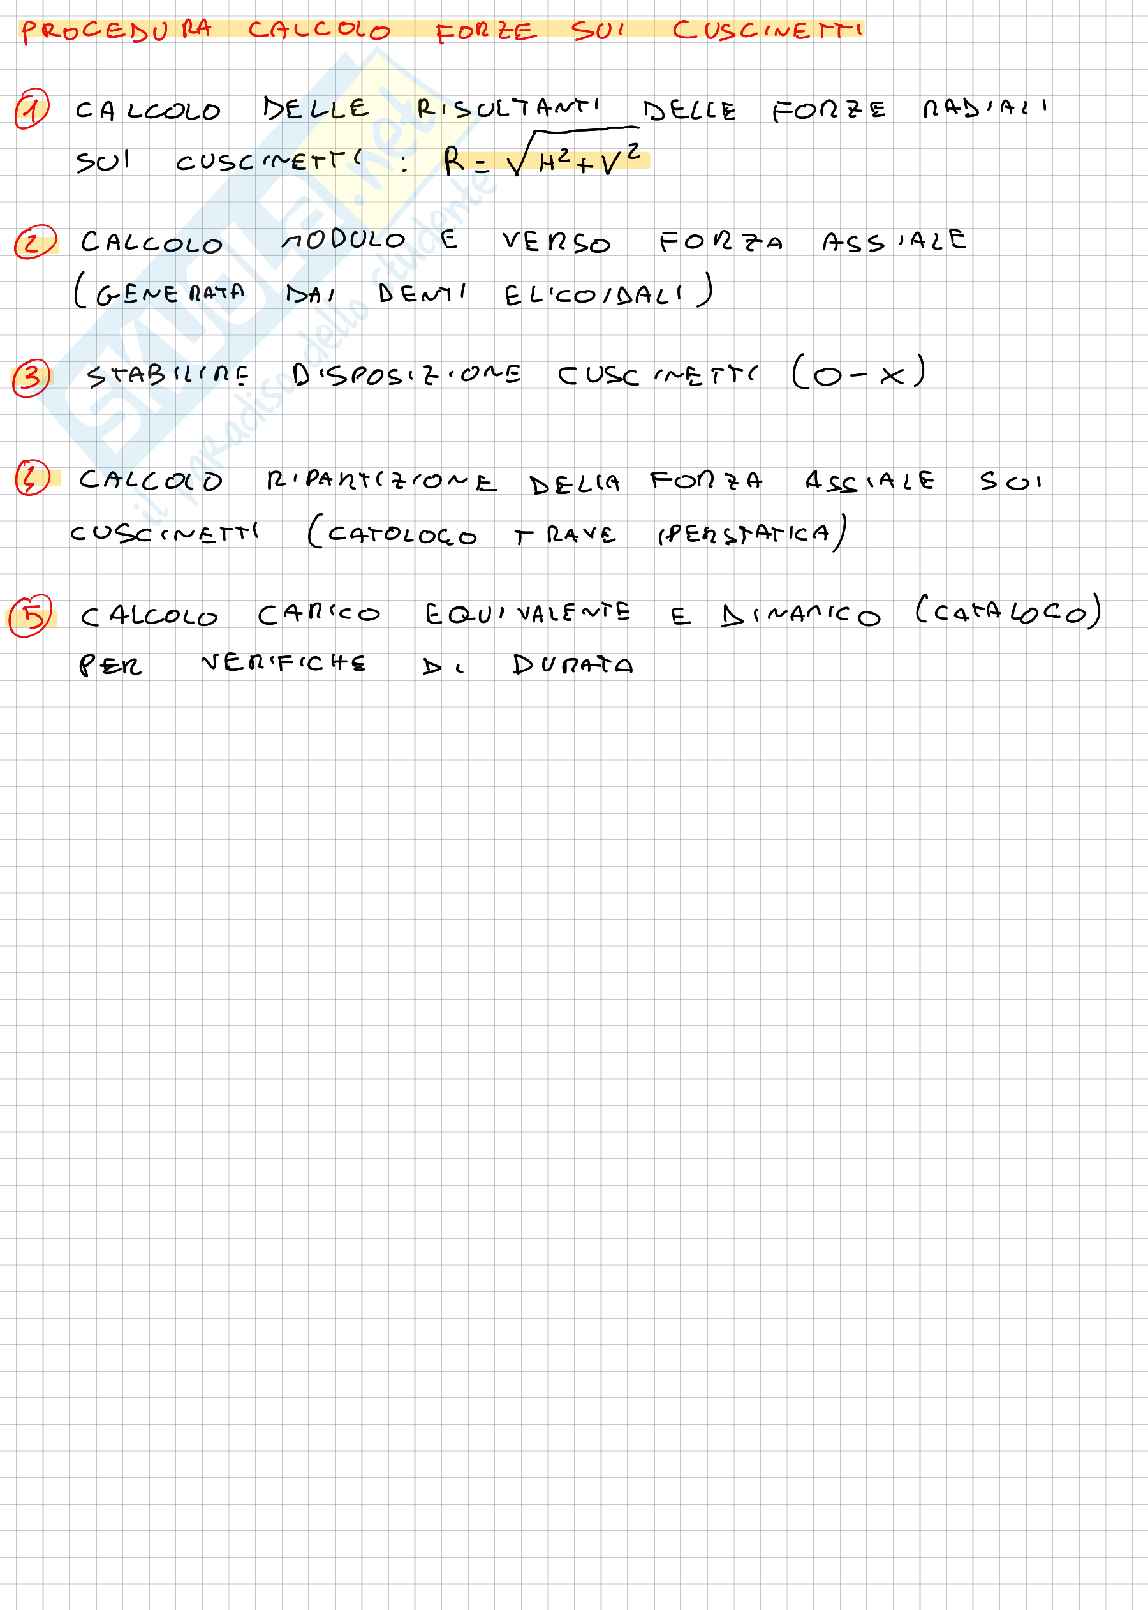 PROCEDURA CALCOLO FORZE SUI CUSCINETTI
1 CALCOLO DELLE RISULTANTI DELLE FORZE RADIALI
SUI CUSCINETTI : R = √H²+V²
2 CALCOLO MODULO E VERSO FORZA ASSIALE
(GENERATA DAI DENTI ELICOIDALI)
3 STABILIRE DISPOSIZIONE CUSCINETTI (O-X)
4 CALCOLO RIPARTIZIONE DELLA FORZA ASSIALE SUI
CUSCINETTI (CATOLOGO TRAVE IPERSTATICA)
5 CALCOLO CARICO EQUIVALENTE E DINAMICO (CATALOGO)
PER VERIFICHE DI DURATA
SKUOLA.net
il paradiso dello studente